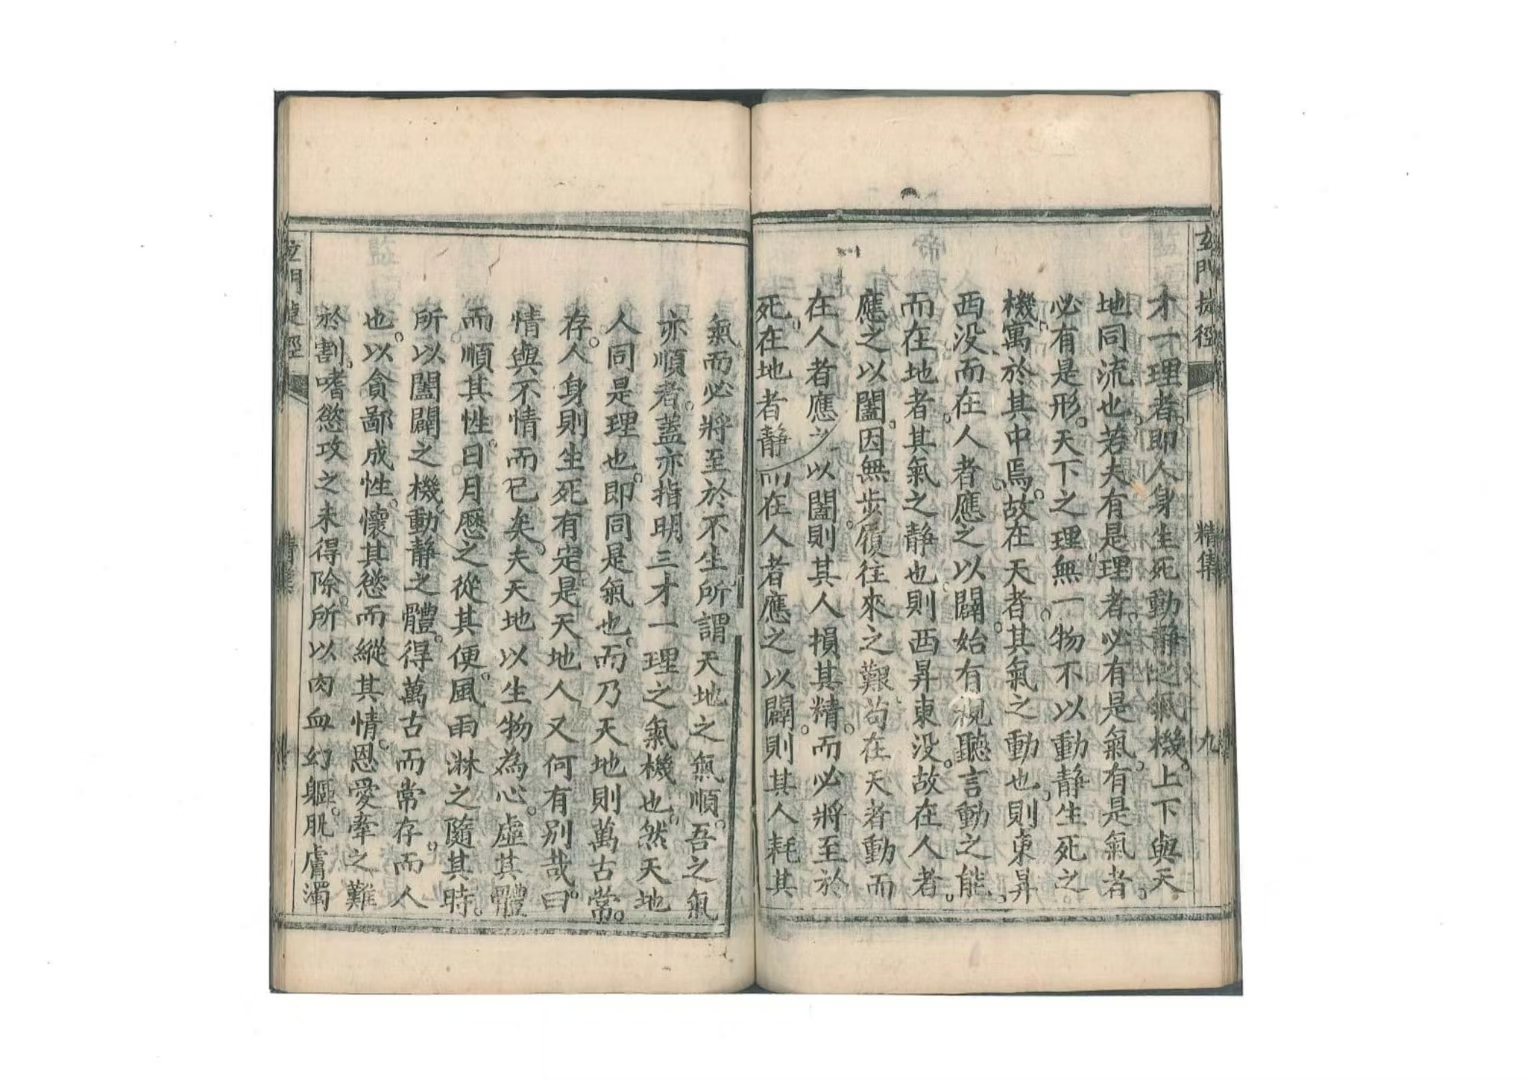 玄門捷徑 精集 九
才一理者即人身生死動靜之氣機上下與天
地同流也若夫有是理者必有是氣有是氣者
必有是形天下之理無一物不以動靜生死之
機寓於其中焉故在天者其氣之動也則東昇
西没而在人者應之以闢始有視聽言動之能
而在地者其氣之静也則西昇東没故在人者
應之以闔因無步履往來之艱茍在天者動而
在人者應之以闔則其人損其精而必將至於
死在地者靜而在人者應之以闢則其人耗其
氣而必將至於不生所謂天地之氣順吾之氣
亦順者蓋亦指明三才一理之氣機也然天地
人同是理也即同是氣也而乃天地則萬古常
存人身則生死有定是天地人又何有別哉曰
情與不情而已矣夫天地以生物為心虛其體
而順其性日月歷之從其便風雨淋之隨其時
所以闔闢之機動靜之體得萬古而常存而人
也以貪鄙成性懷其慾而縱其情恩愛牽之難
於割嗜慾攻之未得除所以肉血幻軀肌膚濁
玄門捷徑 精集